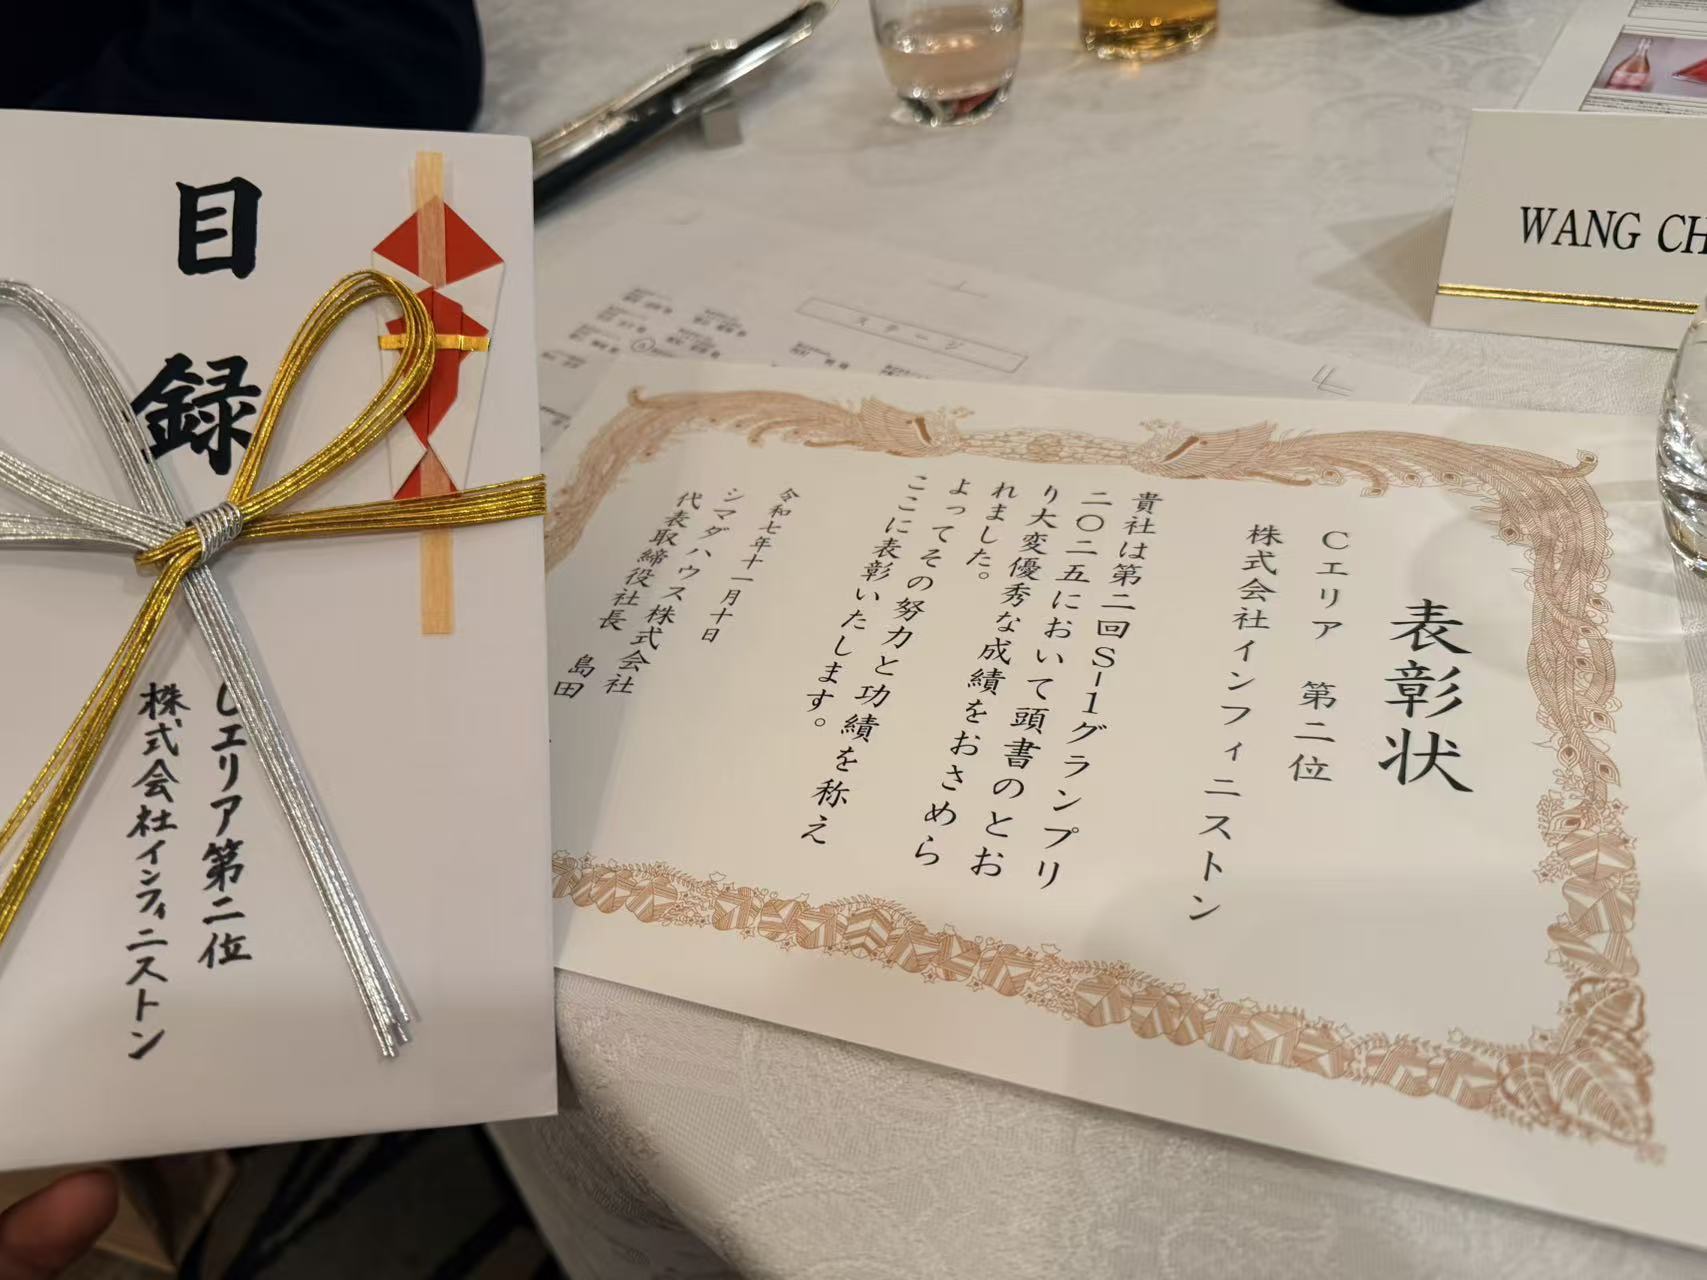 目録
Cエリア第二位
株式会社インフィニストン
WANG CH
ステージ
表彰状
Cエリア 第二位
株式会社インフィニストン
貴社は第二回S-1グランプリ
二〇二五において頭書のとお
り大変優秀な成績をおさめら
れました。
よってその努力と功績を称え
ここに表彰いたします。
令和七年十一月十日
シマダハウス株式会社
代表取締役社長 島田